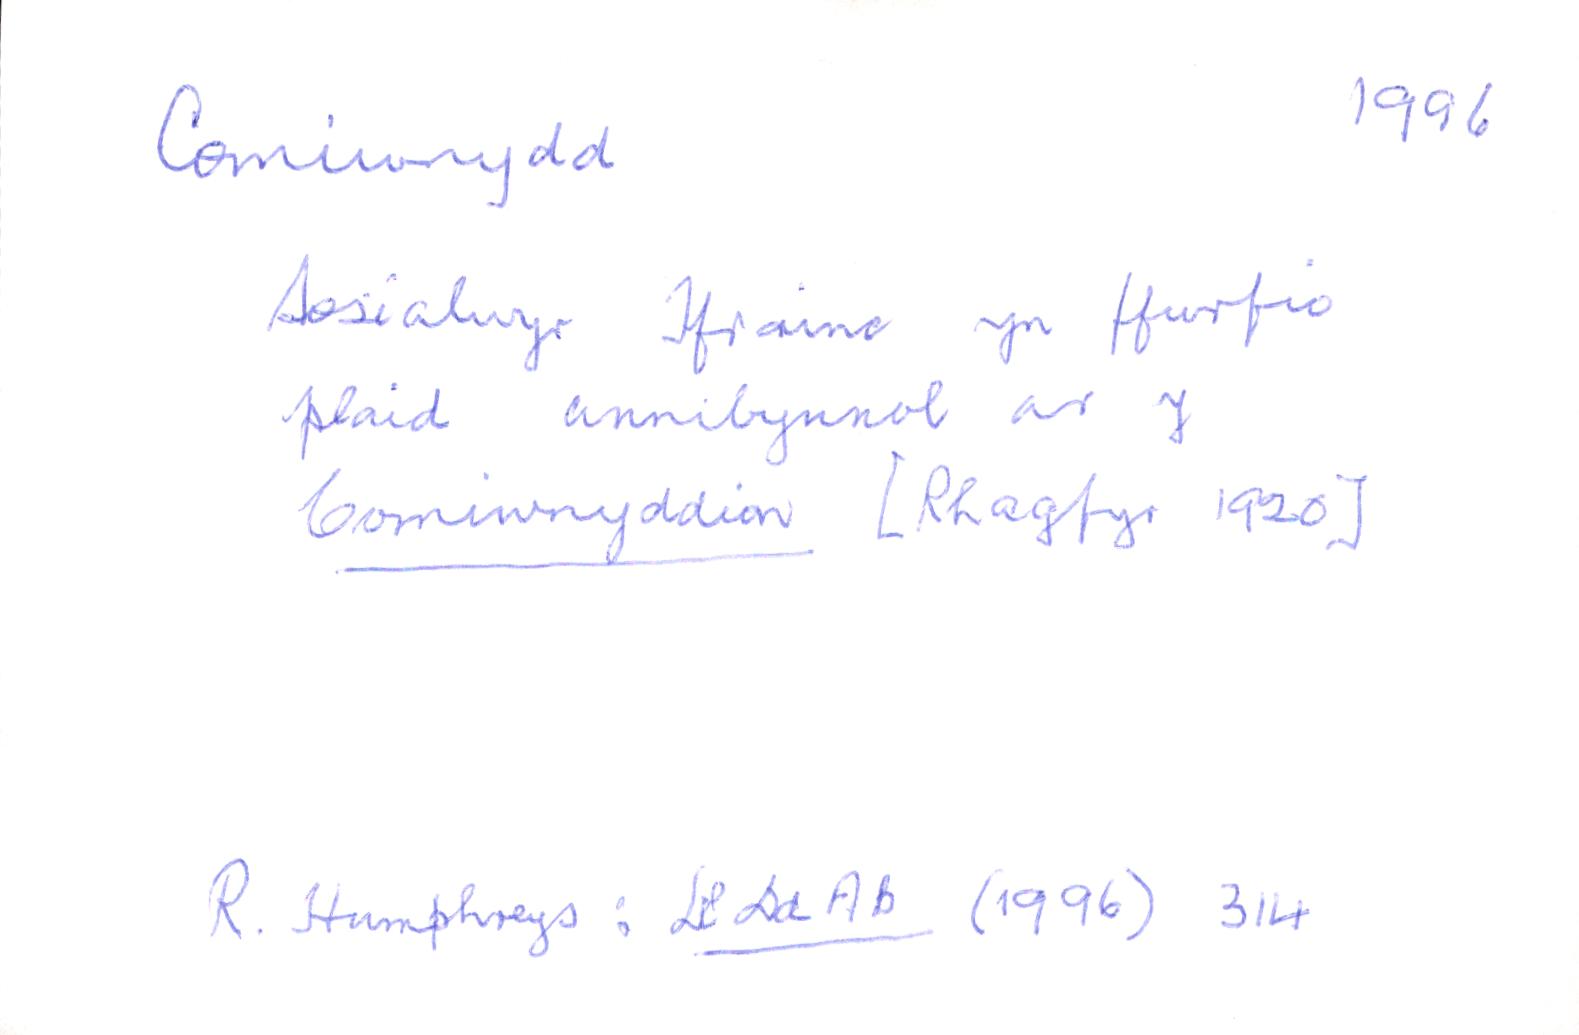 Comiwnydd 1996
Sosialwyr Ffrainc yn ffurfio
plaid annibynnol ar y
Comiwnyddion [Rhagfyr 1920]
R. Humphreys : Ll Dd A B (1996) 314